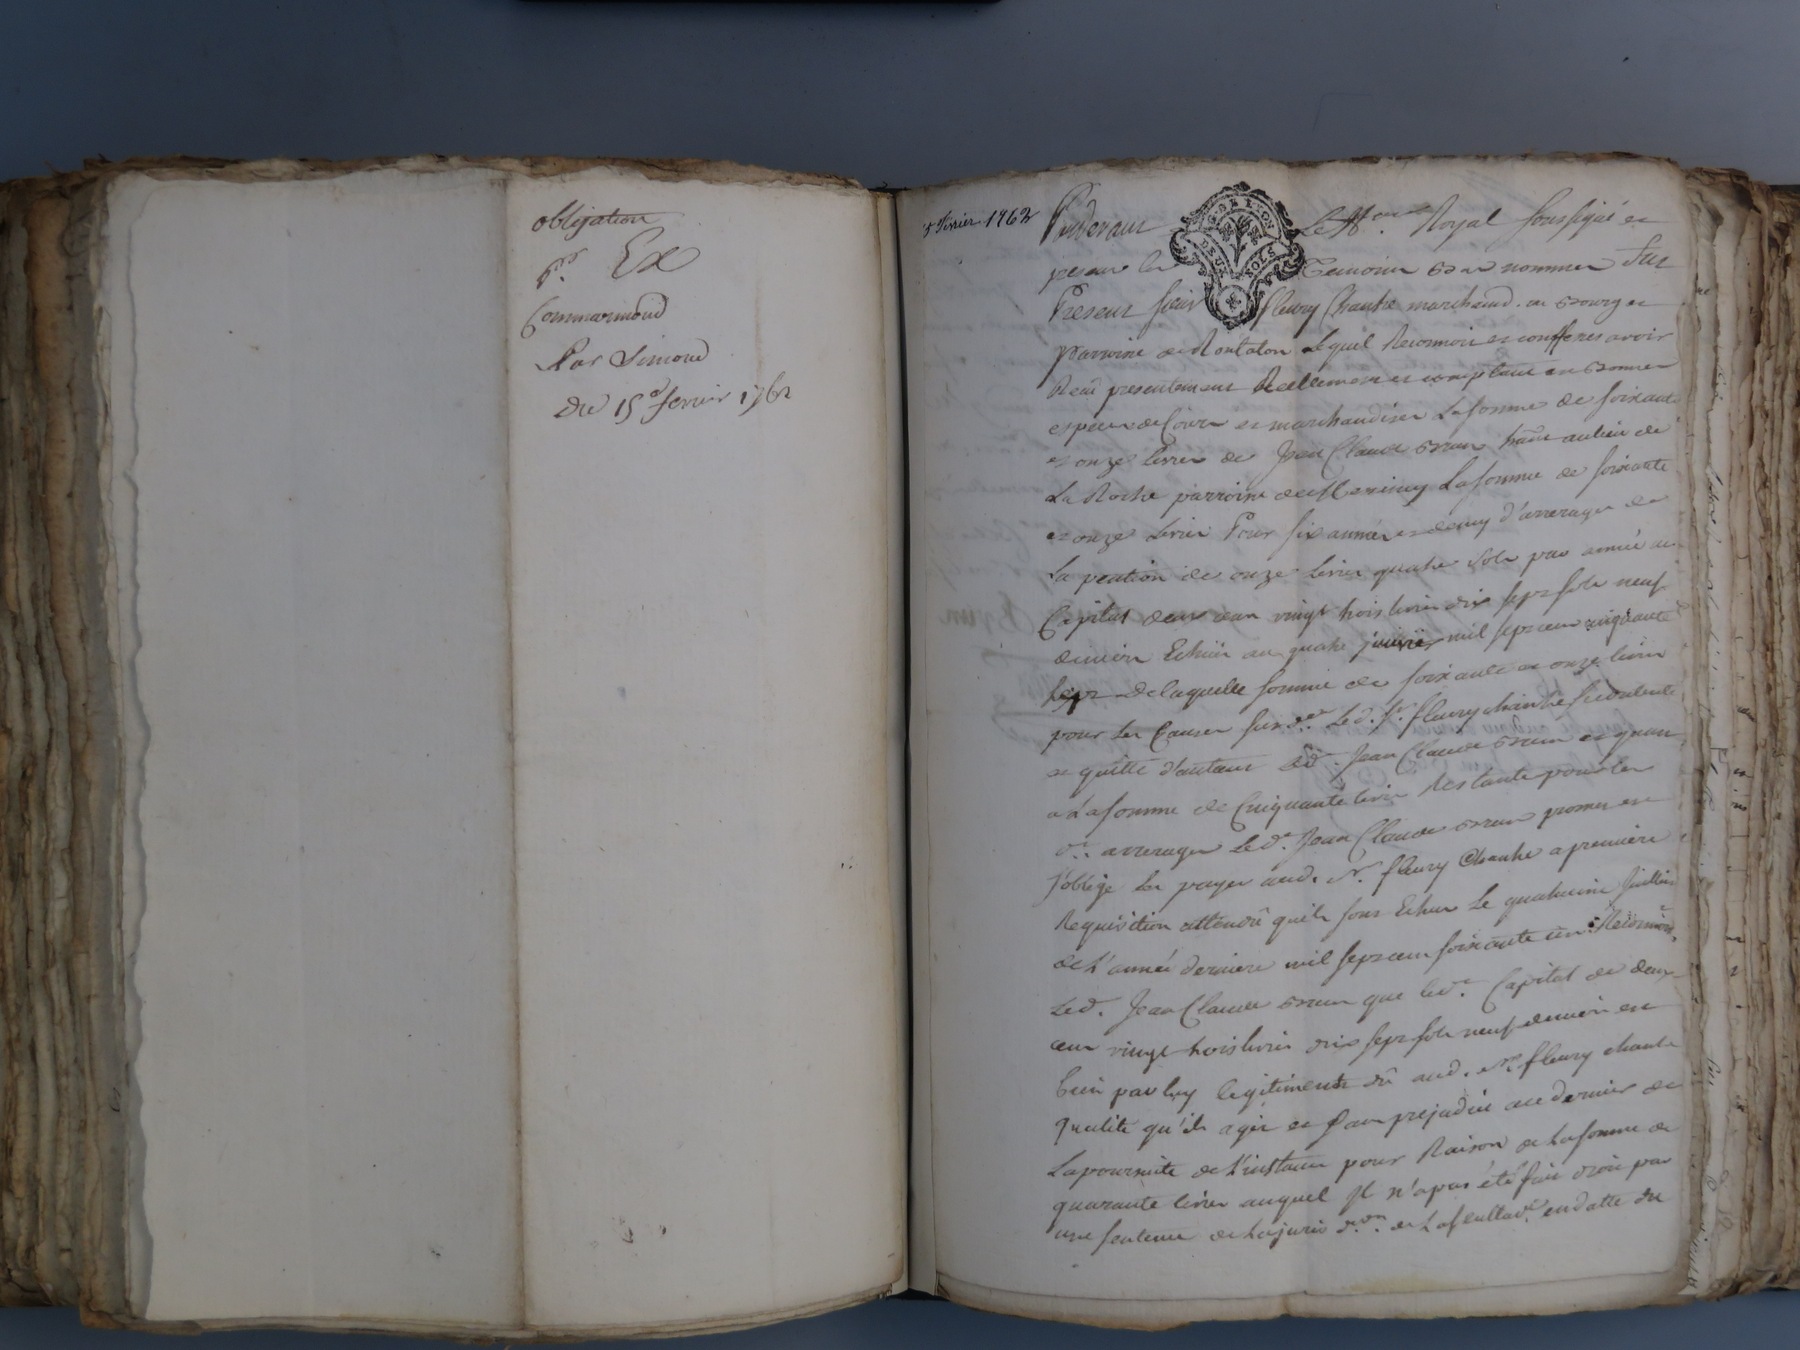 obligation
pr. Ex
Commarmond
Par Simond
Du 15e fevrier 1762
15 fevrier 1762
Pardevant Le Nre. Royal soussigné et
presens les temoins bas nommes fut
G. DE LYON
DEUX SOLS
Present sieur fleury Chantre marchand au bourg et
parroisse de Montaton Lequel Reconnoit et confesse avoir
Receu presentement Reellement et comptant en bonnes
especes de Cours et marchandises La somme de soixante
et onze livres de Jean Claude brun hant. au lieu de
La Roche parroisse de Messimy La somme de soixante
et onze Livres Pour six années et demy d'arrerages de
La pention de onze Livres quatre sols par année au
Capital deux cens vingt trois livres dix sept sols neuf
deniers Echüe au quatre janvier mil sept cens cinquante
sept de laquelle somme de soixante et onze livres
pour les Causes susd. Led. sr. fleury chantre se contente
et quitte d'autant Led. Jean Claude brun et quant
a La somme de Cinquante livres Restante pour les
d. arrerages Led. Jean Claude brun promet et
s'oblige les payer aud. Sr. fleury Chantre a premiere
Requisition attendu qu'ils sont Echus Le quatrieme Juillet
de L'année derniere mil sept cens soixante un Reconnoit
Led. Jean Claude brun que led. Capital de deux
cens vingt trois livres dix sept sols neuf deniers est
bien par luy legitimement dû aud. Sr. fleury chantre
qualité qu'il agit et sans prejudice a ce dernier de
La poursuite de L'instance pour Raison de La somme de
quarante livres auquel Il n'a pas été fait droit par
une sentence de la juris d.on de en datte du